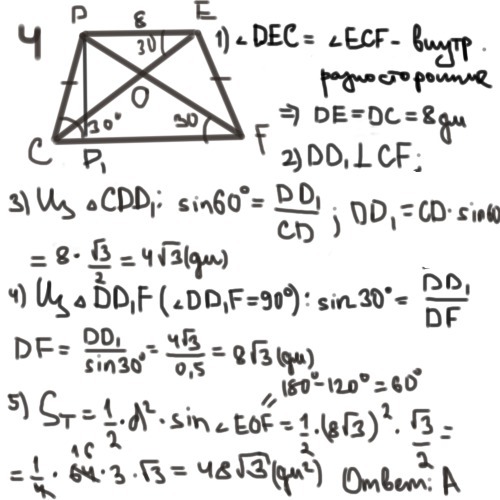 4
D 8 E
30°
O
30° 30
C D₁ F
1) ∠DEC = ∠ECF - внутр.
разносторонние
⇒ DE = DC = 8 дм
2) DD₁ ⊥ CF;
3) Из △CDD₁: sin60° = DD₁/CD ; DD₁ = CD · sin60
= 8 · √3/2 = 4√3 (дм)
4) Из △DD₁F (∠DD₁F = 90°): sin30° = DD₁/DF
DF = DD₁/sin30° = 4√3/0,5 = 8√3 (дм)
180° - 120° = 60°
5) Sт = 1/2 · d² · sin∠EOF = 1/2 · (8√3)² · √3/2 =
= 1/4 · 64 16 · 3 · √3 = 48√3 (дм²) Ответ: А